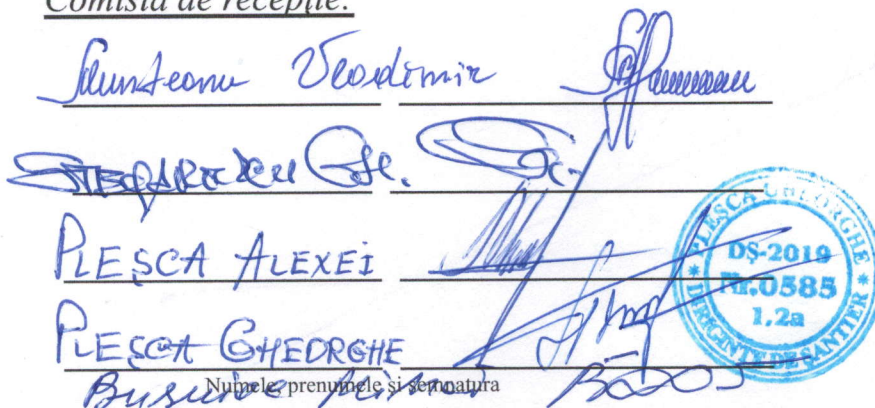 Comisia de recepție:
Munteanu Vladimir
PLEȘCA ALEXEI
PLEȘCA GHEORGHE
Numele, prenumele și semnatura
PLEȘCA GHEORGHE * DIRIGINTE DE ȘANTIER *
DȘ-2019
Nr.0585
1,2a